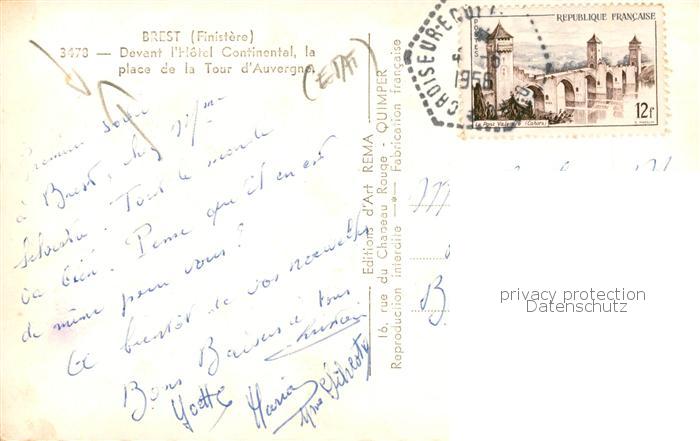 BREST (Finistère)
3478 — Devant l'Hôtel Continental, la
place de la Tour d'Auvergne.
(ETAT)
Premier soir
à Brest, chez Mme
Silvestre. Tout le monde
va bien. Pense que il en est
de même pour vous?
à bientôt de vos nouvelles
Bons Baisers à tous
Yvette Maria
Mme Silvestre
Editions d'Art REMA - QUIMPER
16, rue du Chapeau Rouge
Reproduction interdite —*— Fabrication française
REPUBLIQUE FRANÇAISE
POSTES
12f
Le Pont Valentré (Cahors)
1956
M
B
privacy protection
Datenschutz